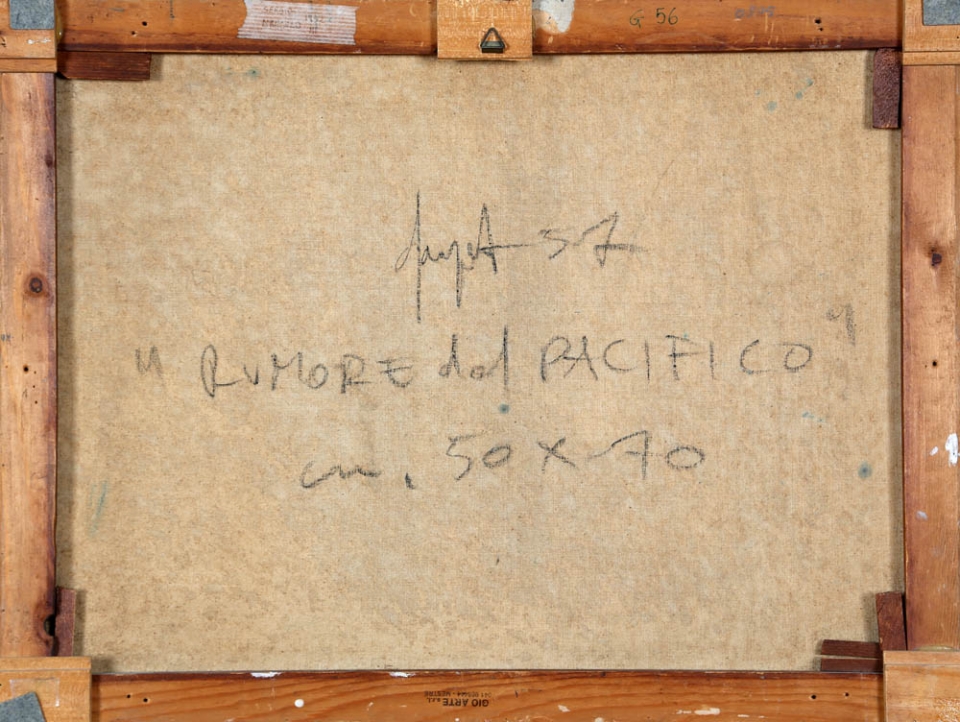 G 56
57
" RUMORE del PACIFICO "
cm. 50 x 70
GIO ARTE s.r.l.